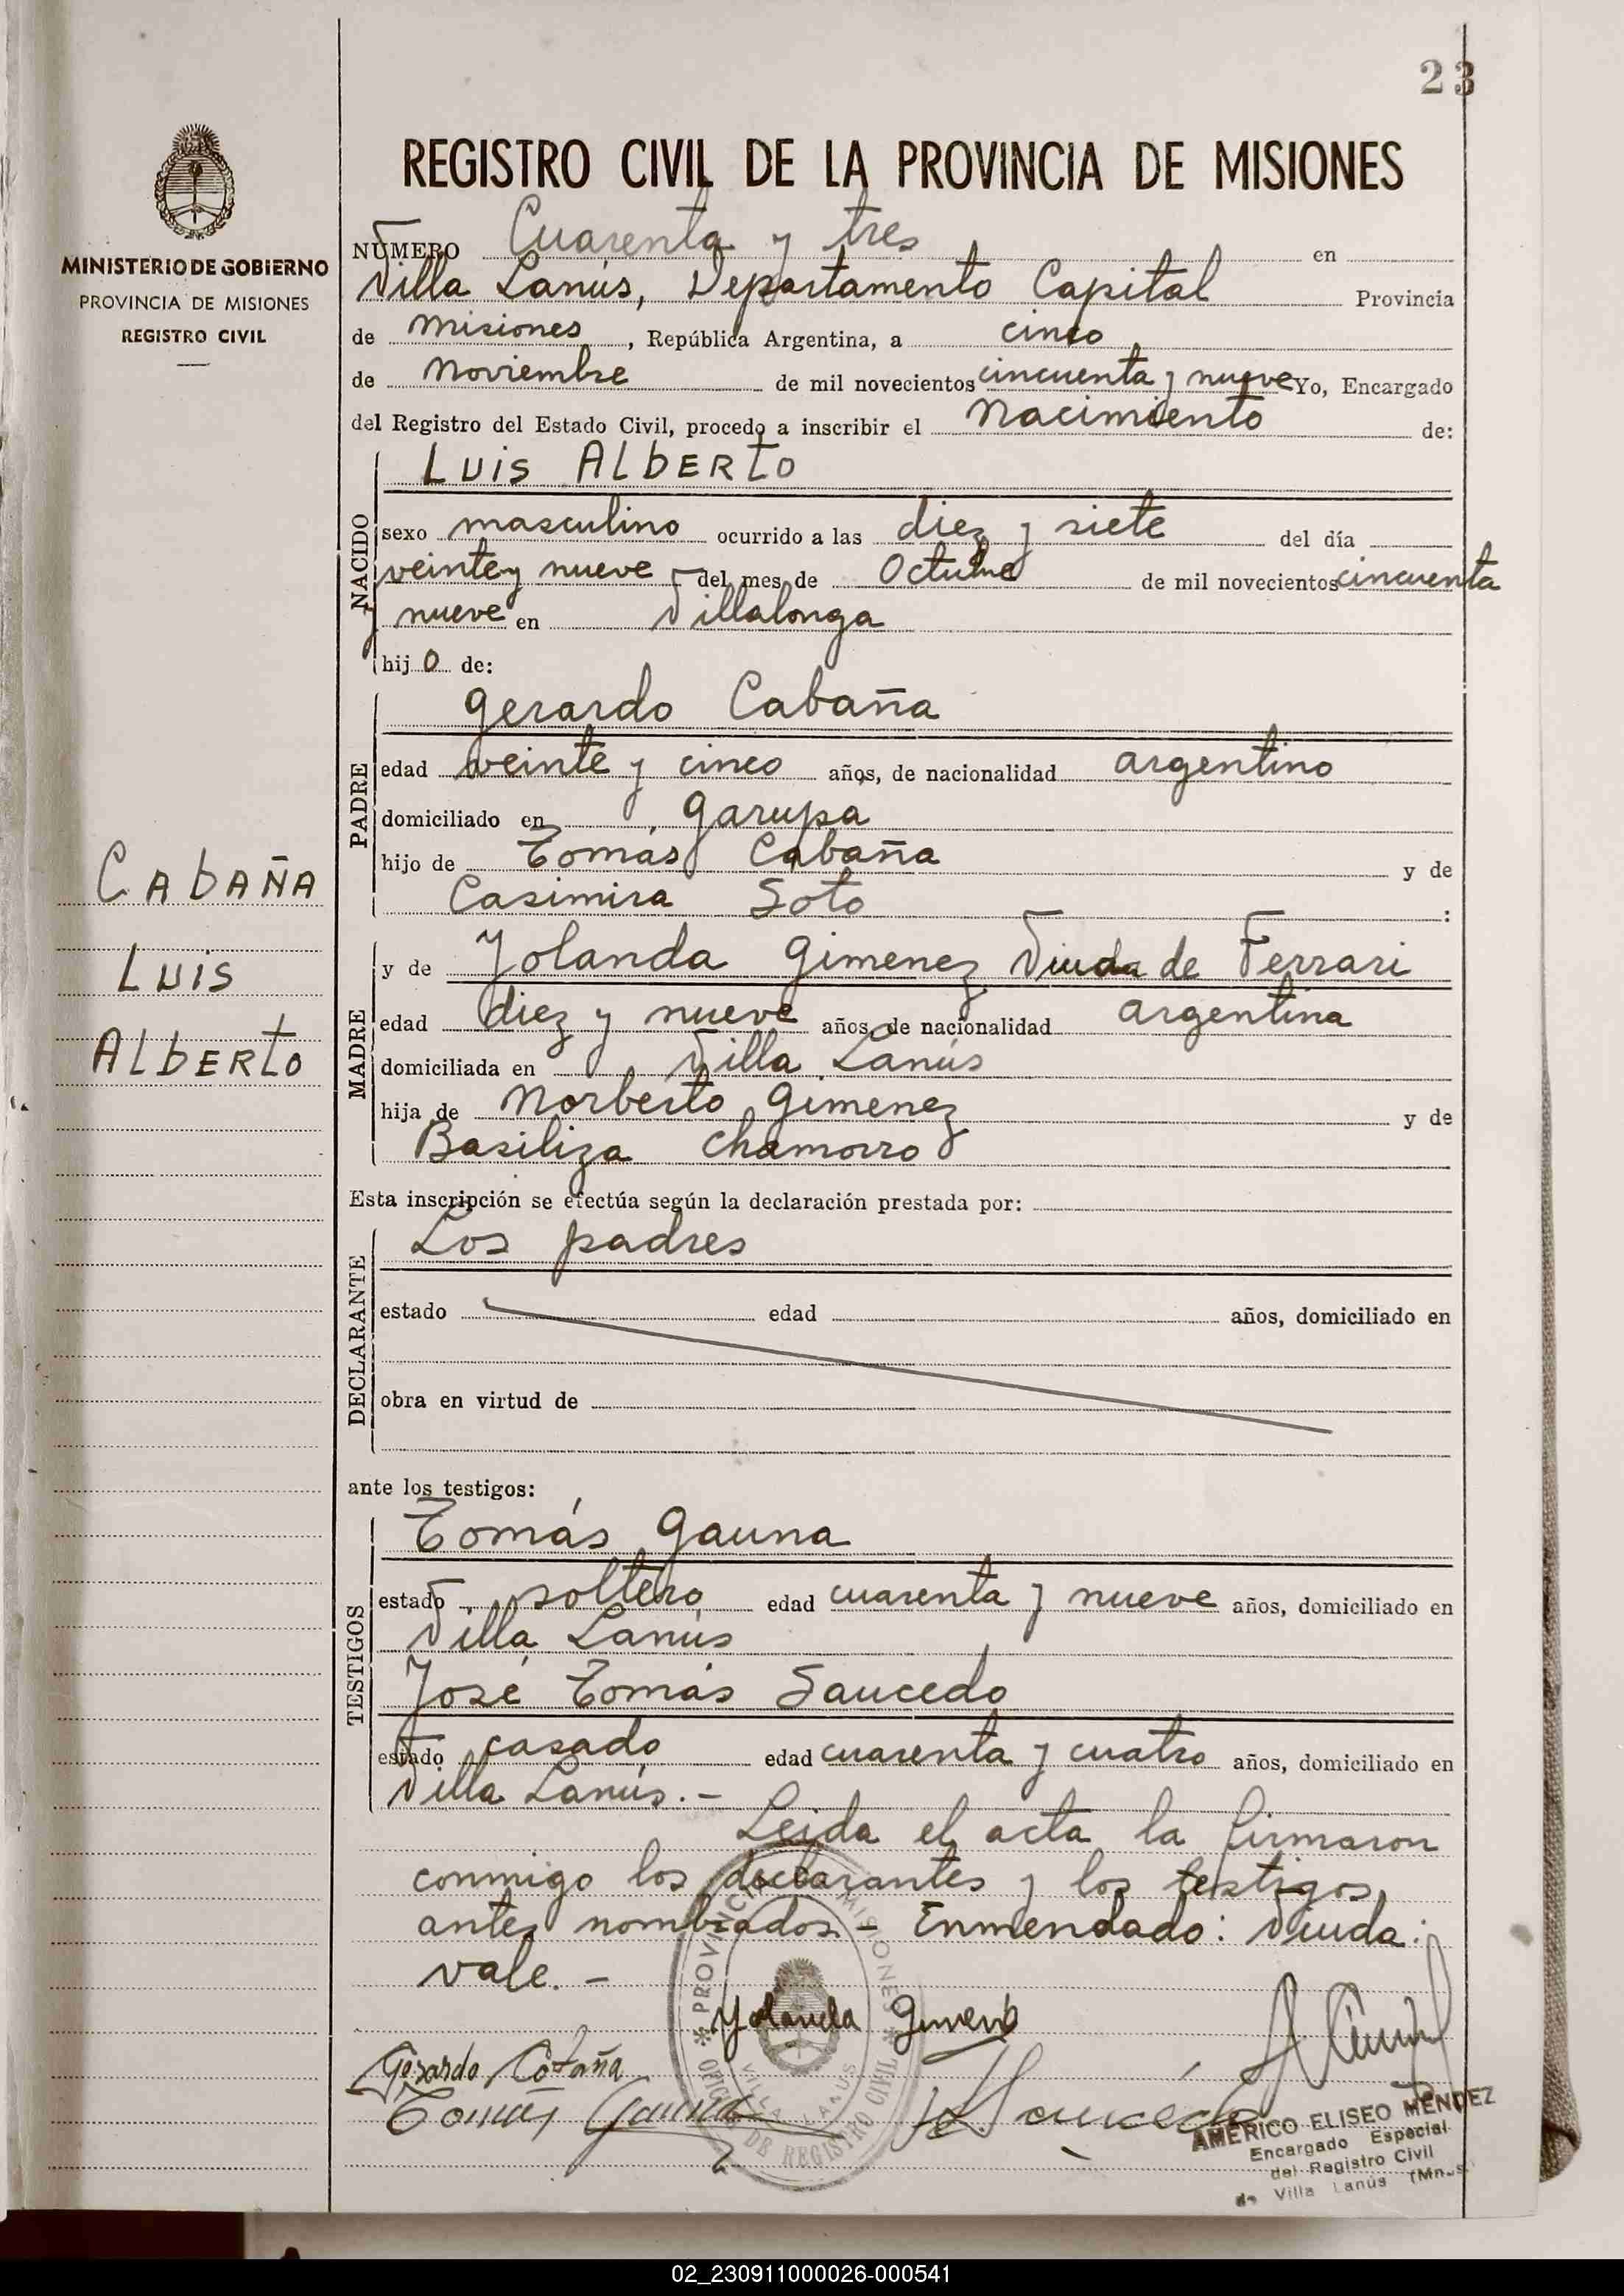 23
REGISTRO CIVIL DE LA PROVINCIA DE MISIONES
MINISTERIO DE GOBIERNO
PROVINCIA DE MISIONES
REGISTRO CIVIL
NÚMERO Cuarenta y tres en
Villa Lanús, Departamento Capital Provincia
de Misiones, República Argentina, a cinco
de Noviembre de mil novecientos cincuenta y nueve Yo, Encargado
del Registro del Estado Civil, procedo a inscribir el Nacimiento de:
NACIDO
Luis Alberto
sexo masculino ocurrido a las diez y siete del día
veinte y nueve del mes de Octubre de mil novecientos cincuenta
y nueve en Villalonga
hijo de:
PADRE
Gerardo Cabaña
edad veinte y cinco años, de nacionalidad argentino
domiciliado en Garupa
hijo de Tomás Cabaña y de
Casimira Soto :
CABAÑA
LUIS
ALBERTO
MADRE
y de Yolanda Gimenez Viuda de Ferrari
edad diez y nueve años, de nacionalidad argentina
domiciliada en Villa Lanús
hija de Norberto Gimenez y de
Basiliza Chamorro
Esta inscripción se efectúa según la declaración prestada por:
DECLARANTE
Los padres
estado edad años, domiciliado en
obra en virtud de
ante los testigos:
TESTIGOS
Tomás Gauna
estado soltero edad cuarenta y nueve años, domiciliado en
Villa Lanús
José Tomás Saucedo
estado casado edad cuarenta y cuatro años, domiciliado en
Villa Lanús.-
Leida el acta la firmaron
conmigo los declarantes y los testigos
antes nombrados.- Enmendado: Viuda:
vale.-
PROVINCIA DE MISIONES
OFICINA DE REGISTRO CIVIL
VILLA LANUS
Yolanda Gimenez
Gerardo Cabaña
Tomás Gauna
AMÉRICO ELISEO MÉNDEZ
Encargado Especial
del Registro Civil
de Villa Lanús (Mnes.
02_230911000026-000541